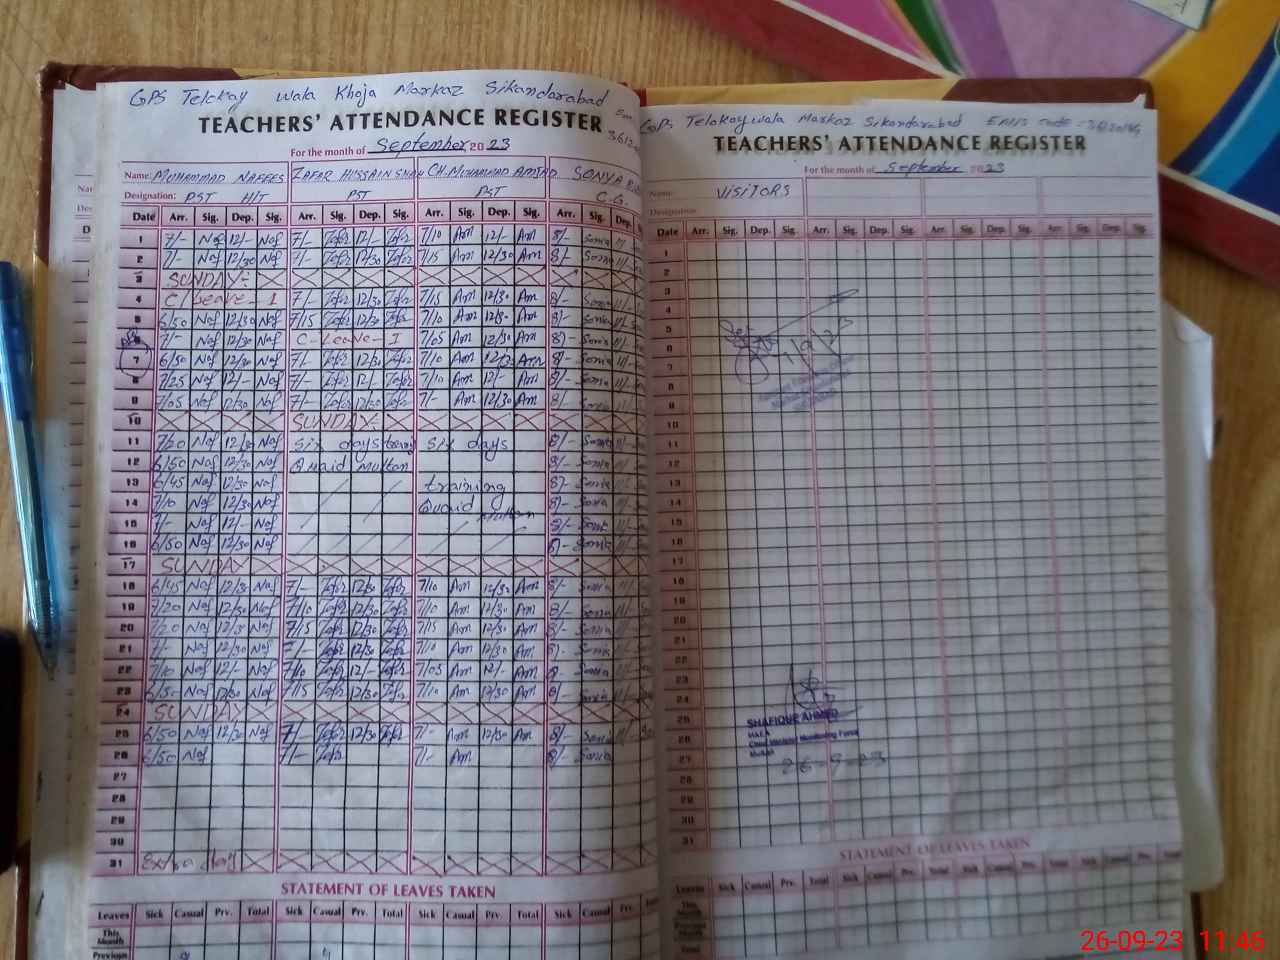 GPS Telokay wala Khoja Markaz Sikandarabad
TEACHERS' ATTENDANCE REGISTER
For the month of September 2023
Name: MUHAMMAD NAFEES ZAFAR HUSSAIN SHAH CH. MUHAMMAD AMJAD SONYA
Designation: PST H/T PST PST C.G.
Date Arr. Sig. Dep. Sig. Arr. Sig. Dep. Sig. Arr. Sig. Dep. Sig. Arr. Sig. Dep.
1 7/- Naf 12/- Naf 7/- Zafar 12/- Zafar 7/10 Am 12/- Am 8/- Sonia 11/-
2 7/- Naf 12/30 Naf 7/- Zafar 12/30 Zafar 7/15 Am 12/30 Am 8/- Sonia 11/-
3 SUNDAY:
4 C/Leave - 1 7/- Zafar 12/30 Zafar 7/15 Am 12/30 Am 8/- Sonia 11/-
5 6/50 Naf 12/30 Naf 7/15 Zafar 12/30 Zafar 7/10 Am 12/30 Am 8/- Sonia 11/-
6 7/- Naf 12/30 Naf C-Leave-I 7/05 Am 12/30 Am 8/- Sonia 11/-
7 6/50 Naf 12/30 Naf 7/- Zafar 12/30 Zafar 7/10 Am Am 8/- Sonia 11/-
8 7/25 Naf 12/- Naf 7/- Zafar 12/- Zafar 7/10 Am 12/- Am 8/- Sonia 11/-
9 7/05 Naf 12/30 Naf 7/- Zafar 12/30 Zafar 7/- Am 12/30 Am 8/- Sonia 11/-
10 SUNDAY:
11 7/20 Naf 12/30 Naf Six days Six days 8/- Sonia 11/-
12 6/50 Naf 12/30 Naf Quaid Multan 8/- Sonia 11/-
13 6/45 Naf 12/30 Naf training 8/- Sonia 11/-
14 7/10 Naf 12/30 Naf Quaid 8/- Sonia 11/-
15 7/- Naf 12/- Naf Multan 8/- Sonia 11/-
16 6/50 Naf 12/30 Naf 8/- Sonia 11/-
17 SUNDAY
18 6/45 Naf 12/30 Naf 7/- Zafar 12/30 Zafar 7/10 Am 12/30 Am 8/- Sonia 11/-
19 7/20 Naf 12/30 Naf 7/10 Zafar 12/30 Zafar 7/10 Am 12/30 Am 8/- Sonia 11/-
20 7/20 Naf 12/30 Naf 7/15 Zafar 12/30 Zafar 7/15 Am 12/30 Am 8/- Sonia 11/-
21 7/- Naf 12/30 Naf 7/- Zafar 12/30 Zafar 7/10 Am 12/30 Am 8/- Sonia 11/-
22 7/10 Naf 12/- Naf 7/10 Zafar 12/- Zafar 7/05 Am 12/- Am 8/- Sonia 11/-
23 6/50 Naf 12/30 Naf 7/15 Zafar 12/30 Zafar 7/10 Am 12/30 Am 8/- Sonia 11/-
24 SUNDAY
25 6/50 Naf 12/30 Naf 7/- Zafar 12/30 Zafar 7/- Am 12/30 Am 8/- Sonia 11/-
26 6/50 Naf 7/- Zafar 7/- Am 8/- Sonia
27
28
29
30
31 Extra day
STATEMENT OF LEAVES TAKEN
Leaves Sick Casual Prv. Total Sick Casual Prv. Total Sick Casual Prv. Total Sick Casual Prv.
This Month
Previous
GPS Telokaywala Markaz Sikandarabad EMIS code:
TEACHERS' ATTENDANCE REGISTER
For the month of September 2023
Name: VISITORS
Designation:
Date Arr. Sig. Dep. Sig. Arr. Sig. Dep. Sig. Arr. Sig. Dep. Sig. Arr. Sig. Dep. Sig.
1
2
3
4
5
6
7
8
9
10
11
12
13
14
15
16
17
18
19
20
21
22
23
24
25
26
27
28
29
30
31
SHAFIQUE AHMED
Chief Minister Monitoring Force
Multan
26-9-23
STATEMENT OF LEAVES TAKEN
Leaves Sick Casual Prv. Total Sick Casual Prv. Total Sick Casual Prv. Total Sick Casual Prv.
This Month
Previous Month
Total
26-09-23 11:46